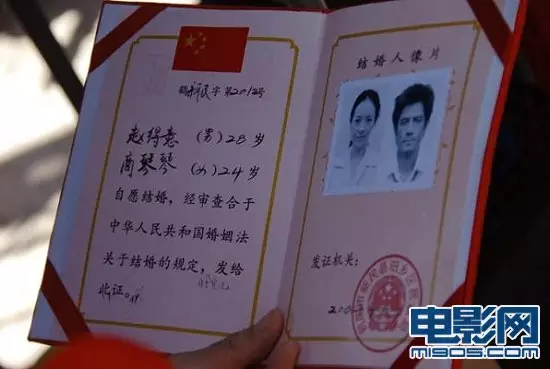 字第2012号
赵得意 (男) 28 岁
商琴琴 (女) 24 岁
自愿结婚，经审查合于
中华人民共和国婚姻法
关于结婚的规定，发给
此证。
结婚人像片
发证机关：
电影网
m1905.com